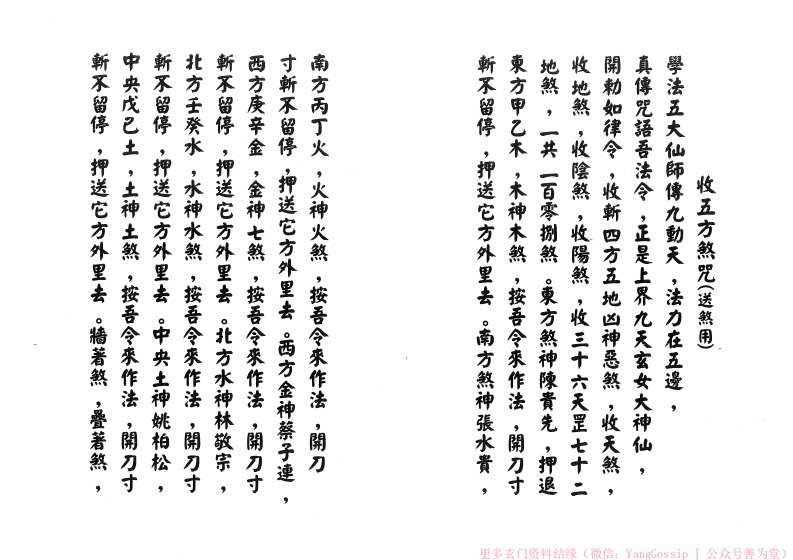 收五方煞咒(送煞用)
學法五大仙師傳九動天，法力在五邊，
真傳咒語吾法令，正是上界九天玄女大神仙，
開勅如律令，收斬四方五地凶神惡煞，收天煞，
收地煞，收陰煞，收陽煞，收三十六天罡七十二
地煞，一共一百零捌煞。東方煞神陳貴先，押退
東方甲乙木，木神木煞，按吾令來作法，開刀寸
斬不留停，押送它方外里去。南方煞神張水貴，
南方丙丁火，火神火煞，按吾令來作法，開刀
寸斬不留停，押送它方外里去。西方金神蔡子連，
西方庚辛金，金神七煞，按吾令來作法，開刀寸
斬不留停，押送它方外里去。北方水神林敬宗，
北方壬癸水，水神水煞，按吾令來作法，開刀寸
斬不留停，押送它方外里去。中央土神姚柏松，
中央戊己土，土神土煞，按吾令來作法，開刀寸
斬不留停，押送它方外里去。牆著煞，疊著煞，
更多玄门资料结缘（微信：YangGossip | 公众号善为堂）